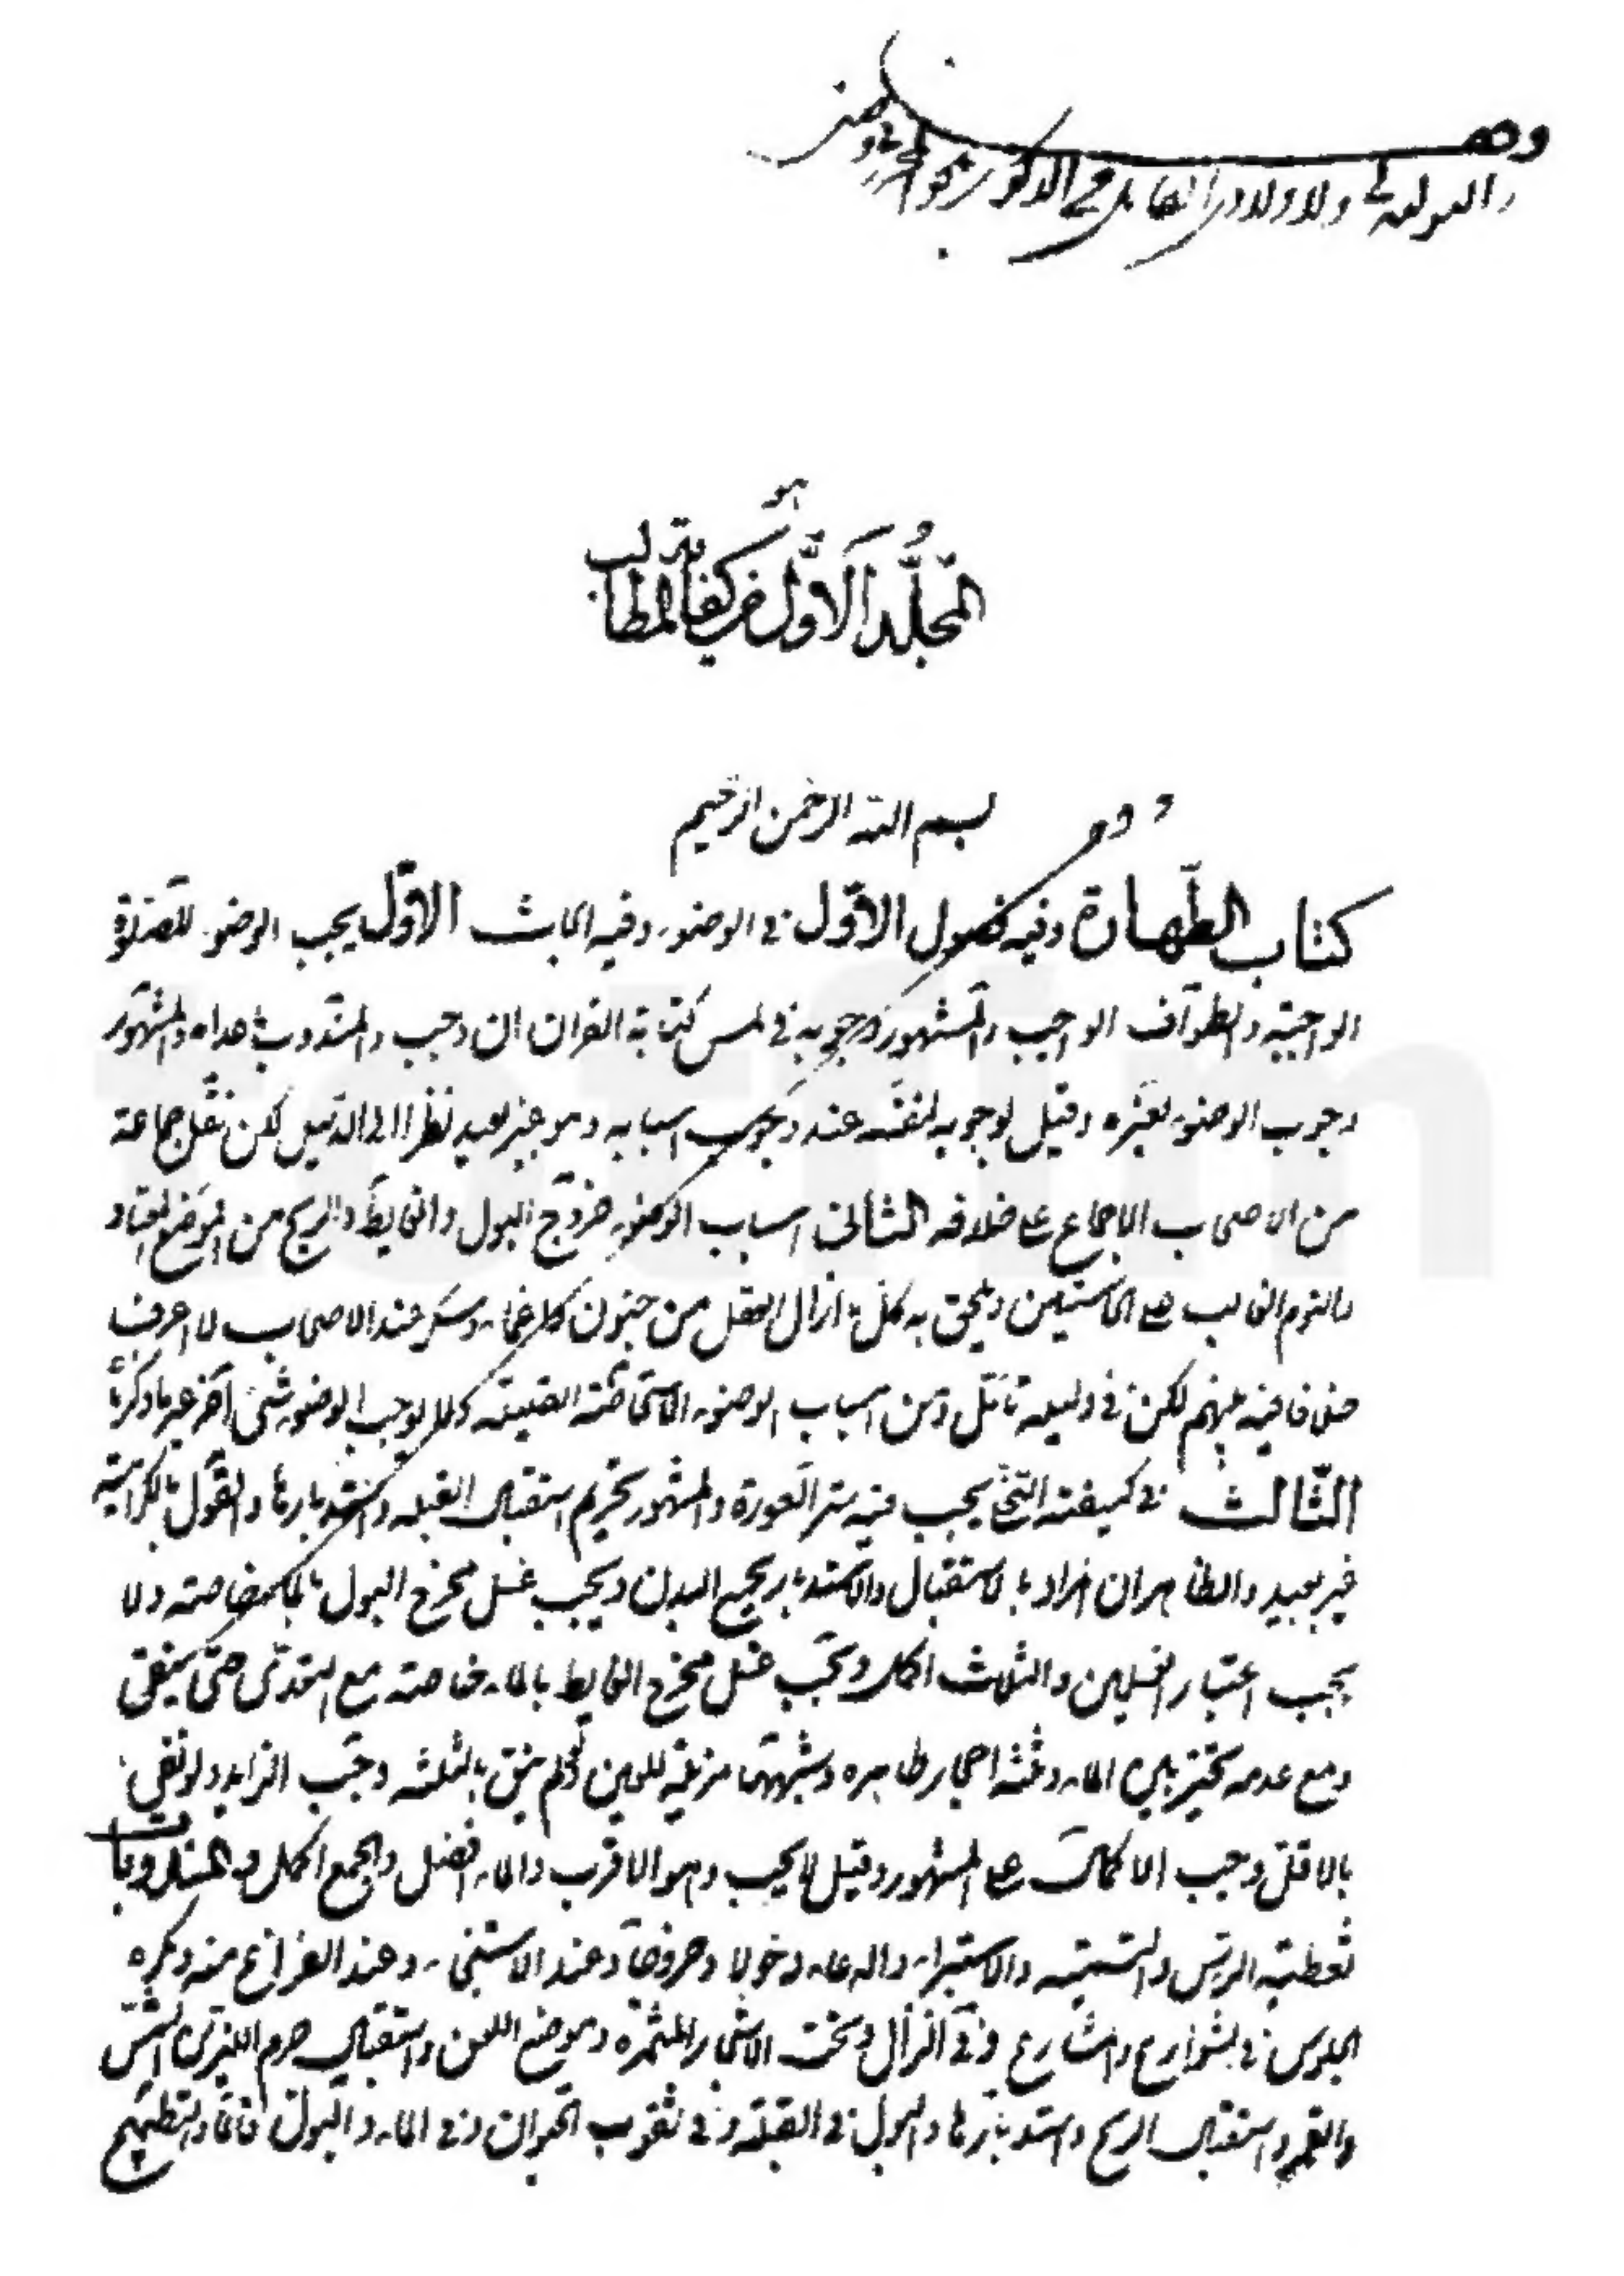 هو
المجلد الاول من كفاية المطالب
بسم الله الرحمن الرحيم
كتاب الطهارة وفيه فصول الاول في الوضوء وفيه ابحاث الاول يجب الوضوء للصلوة
الواجبة والطواف الواجب والمشهور وجوبه في لمس كتابة القران ان وجب والمندوب ما عداه والمشهور
وجوب الوضوء لغيره وقيل لوجوبه لنفسه عند وجوب اسبابه وهو غير بعيد نظرا الى الدليل لكن نقل جماعة
من الاصحاب الاجماع على خلافه الثاني اسباب الوضوء خروج البول والغايط والريح من الموضع المعتاد
والنوم الغالب على الحاستين ويلحق به كل ما ازال العقل من جنون واغماء وسكر عند الاصحاب لا اعرف
خلافا فيه بينهم لكن في دليله تأمل ومن اسباب الوضوء الاستحاضة القليلة ولا يوجب الوضوء شئ آخر غير ما ذكرنا
الثالث في كيفية التخلي يجب فيه ستر العورة والمشهور تحريم استقبال القبلة واستدبارها والقول بالكراهية
غير بعيد والظاهر ان المراد بالاستقبال والاستدبار بجميع البدن ويجب غسل مخرج البول بالماء خاصة ولا
يجب اعتبار الغسلين والثلاث اكمل ويجب غسل مخرج الغايط بالماء خاصة مع التعدي حتى ينقى
ومع عدمه تخير بين الماء وثلثة احجار طاهره وشبهها مزيلة للعين ولو لم ينق بالثلثه وجب الزايد ولو نقى
بالاقل وجب الاكمال على المشهور وقيل لا يجب وهو الاقرب والماء افضل والجمع اكمل والمندوبات
تغطية الراس والتسمية والاستبراء والدعاء دخولا وخروجا وعند الاستنجاء وعند الفراغ منه ويكره
الجلوس في الشوارع والمشارع وفي النزال وتحت الاشجار المثمرة وموضع اللعن واستقبال جرم النيرين الشمس
والقمر واستقبال الريح واستدبارها والبول في الصلبة وفي ثقوب الحيوان وفي الماء والبول قائما والتطميح